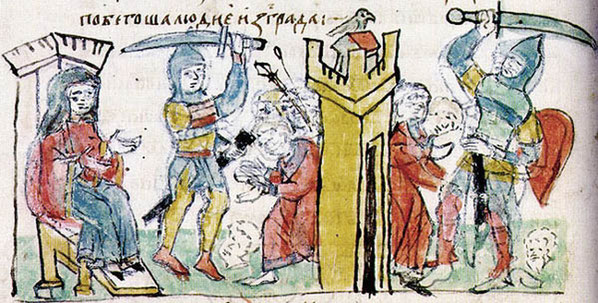 побегоша людие из града: